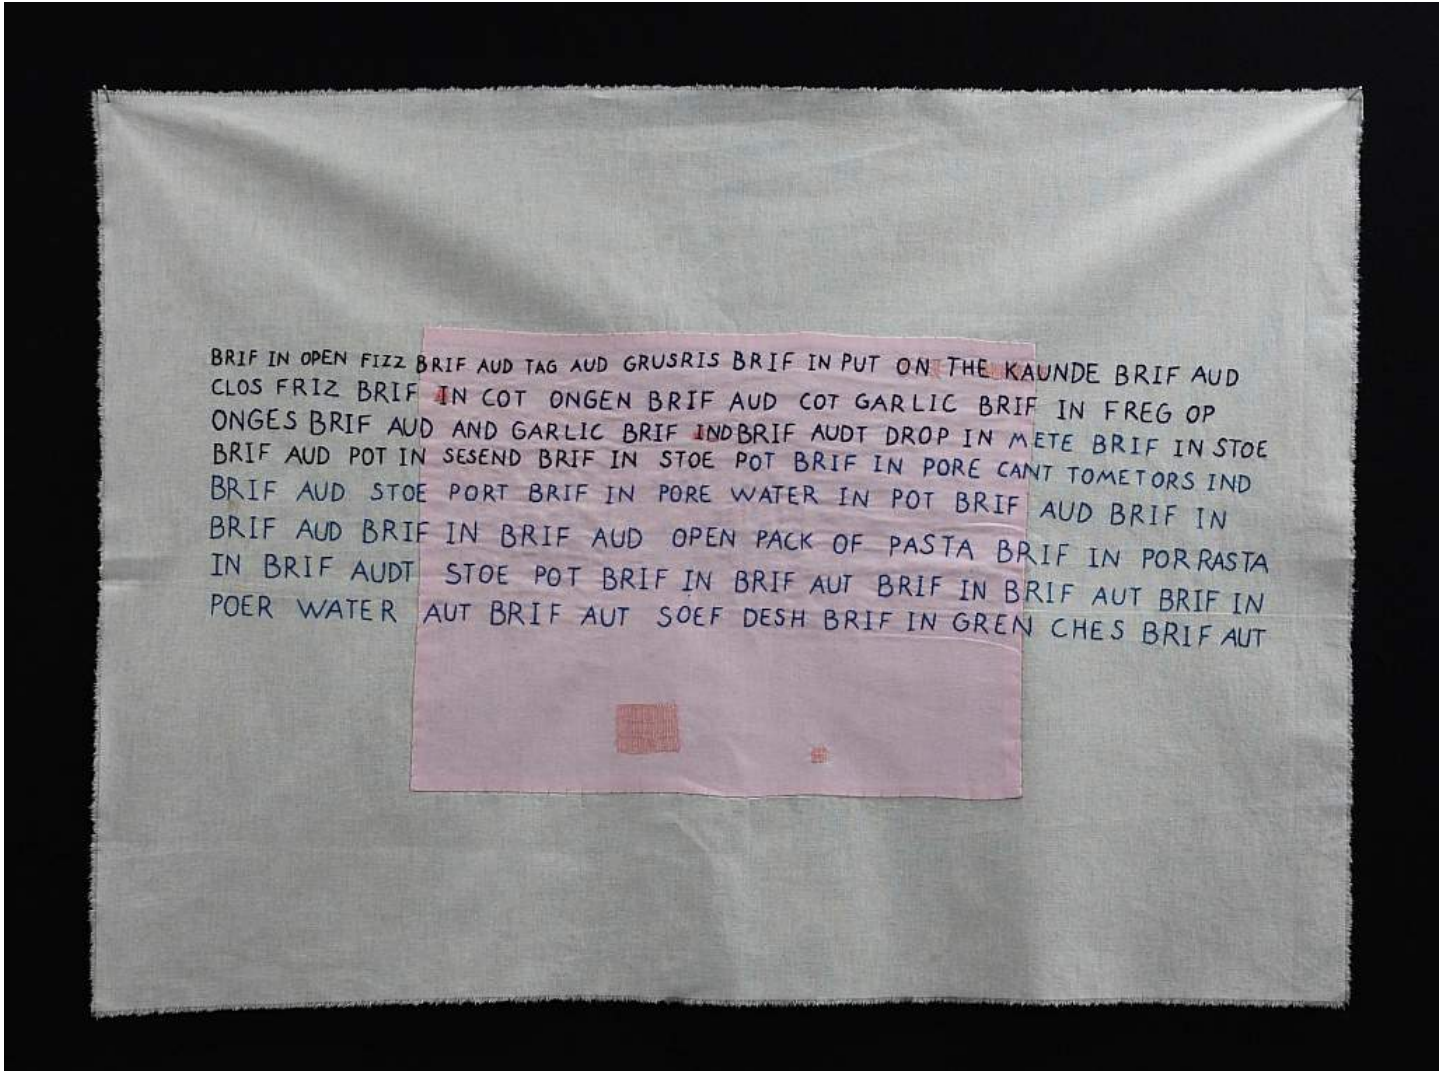 BRIF IN OPEN FIZZ BRIF AUD TAG AUD GRUSRIS BRIF IN PUT ON THE KAUNDE BRIF AUD
CLOS FRIZ BRIF IN COT ONGEN BRIF AUD COT GARLIC BRIF IN FREG OP
ONGES BRIF AUD AND GARLIC BRIF IND BRIF AUDT DROP IN METE BRIF IN STOE
BRIF AUD POT IN SESEND BRIF IN STOE POT BRIF IN PORE CANT TOMETORS IND
BRIF AUD STOE PORT BRIF IN PORE WATER IN POT BRIF AUD BRIF IN
BRIF AUD BRIF IN BRIF AUD OPEN PACK OF PASTA BRIF IN POR RASTA
IN BRIF AUDT STOE POT BRIF IN BRIF AUT BRIF IN BRIF AUT BRIF IN
POER WATER AUT BRIF AUT SOEF DESH BRIF IN GREN CHES BRIF AUT